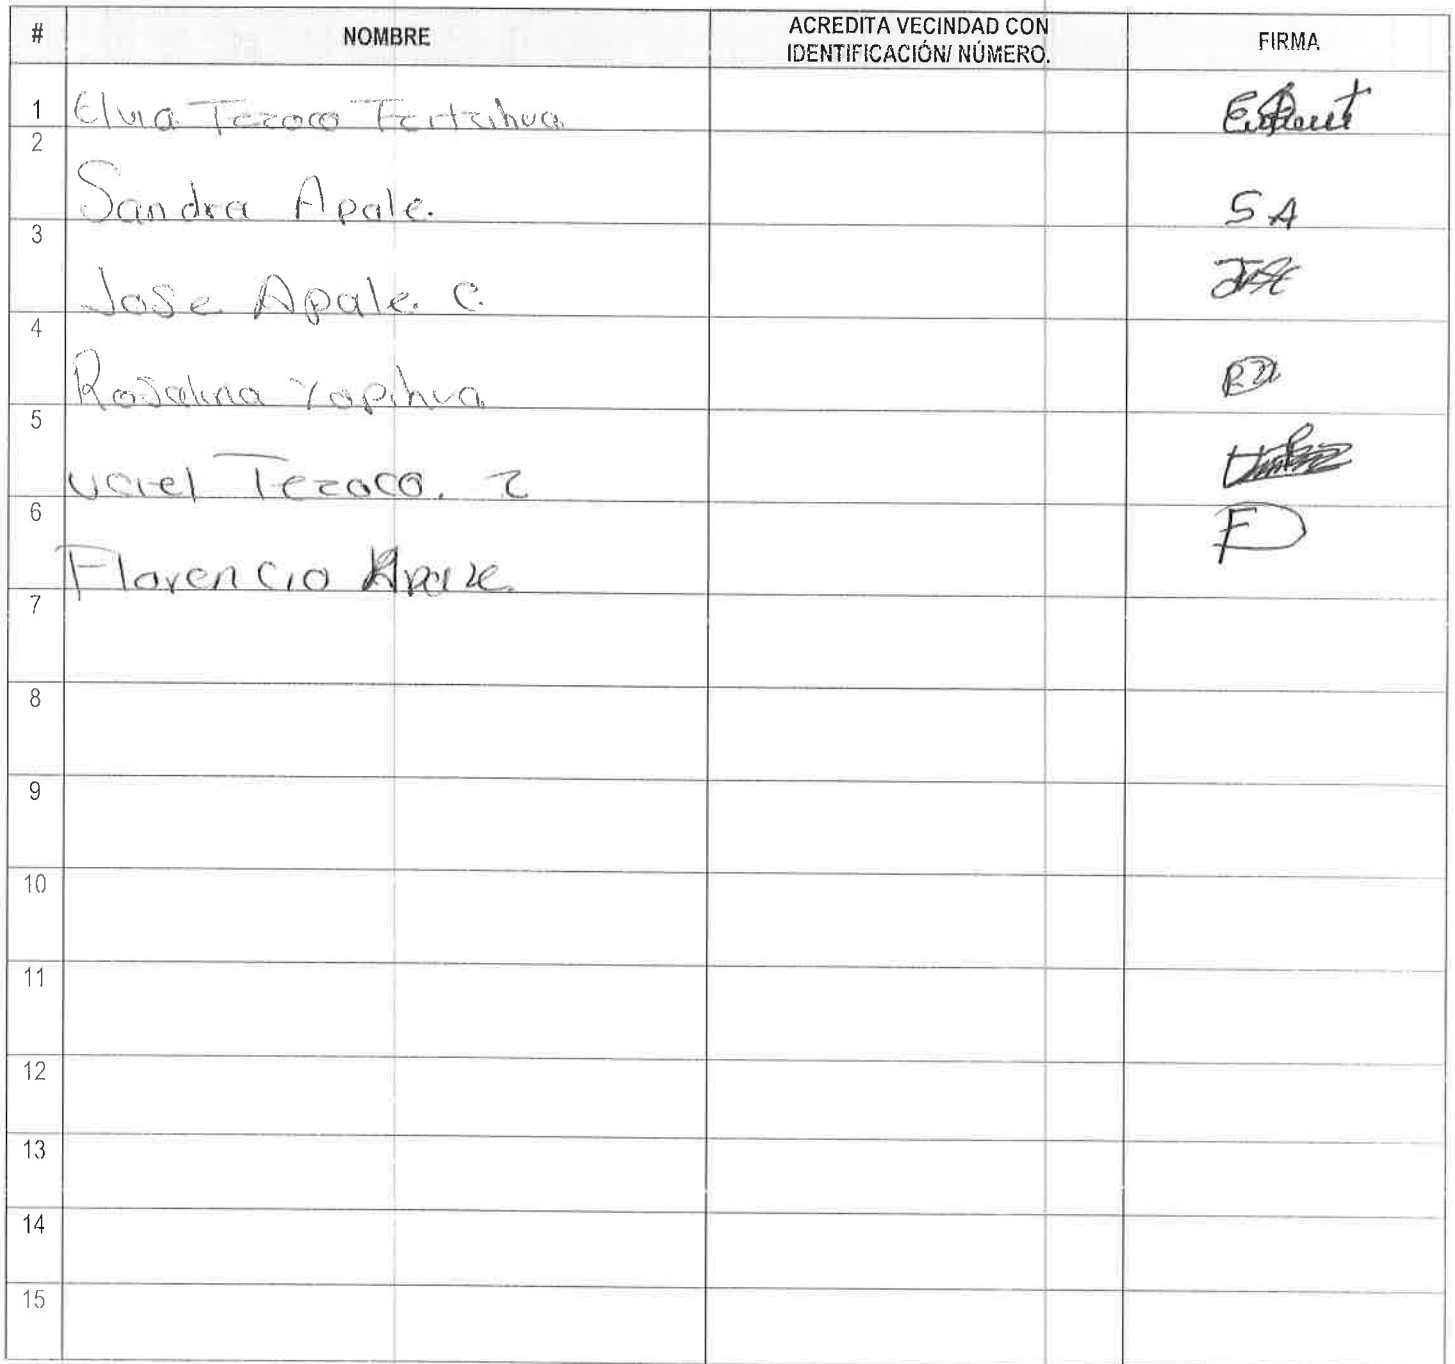 # NOMBRE ACREDITA VECINDAD CON IDENTIFICACIÓN/ NÚMERO. FIRMA
1 Elvia Tezoco
2 Sandra Apale. S A
3 Jose Apale. C.
4 Rosalina Yopihua
5 Uriel Tezoco. Z
6 Florencio Apale
7
8
9
10
11
12
13
14
15